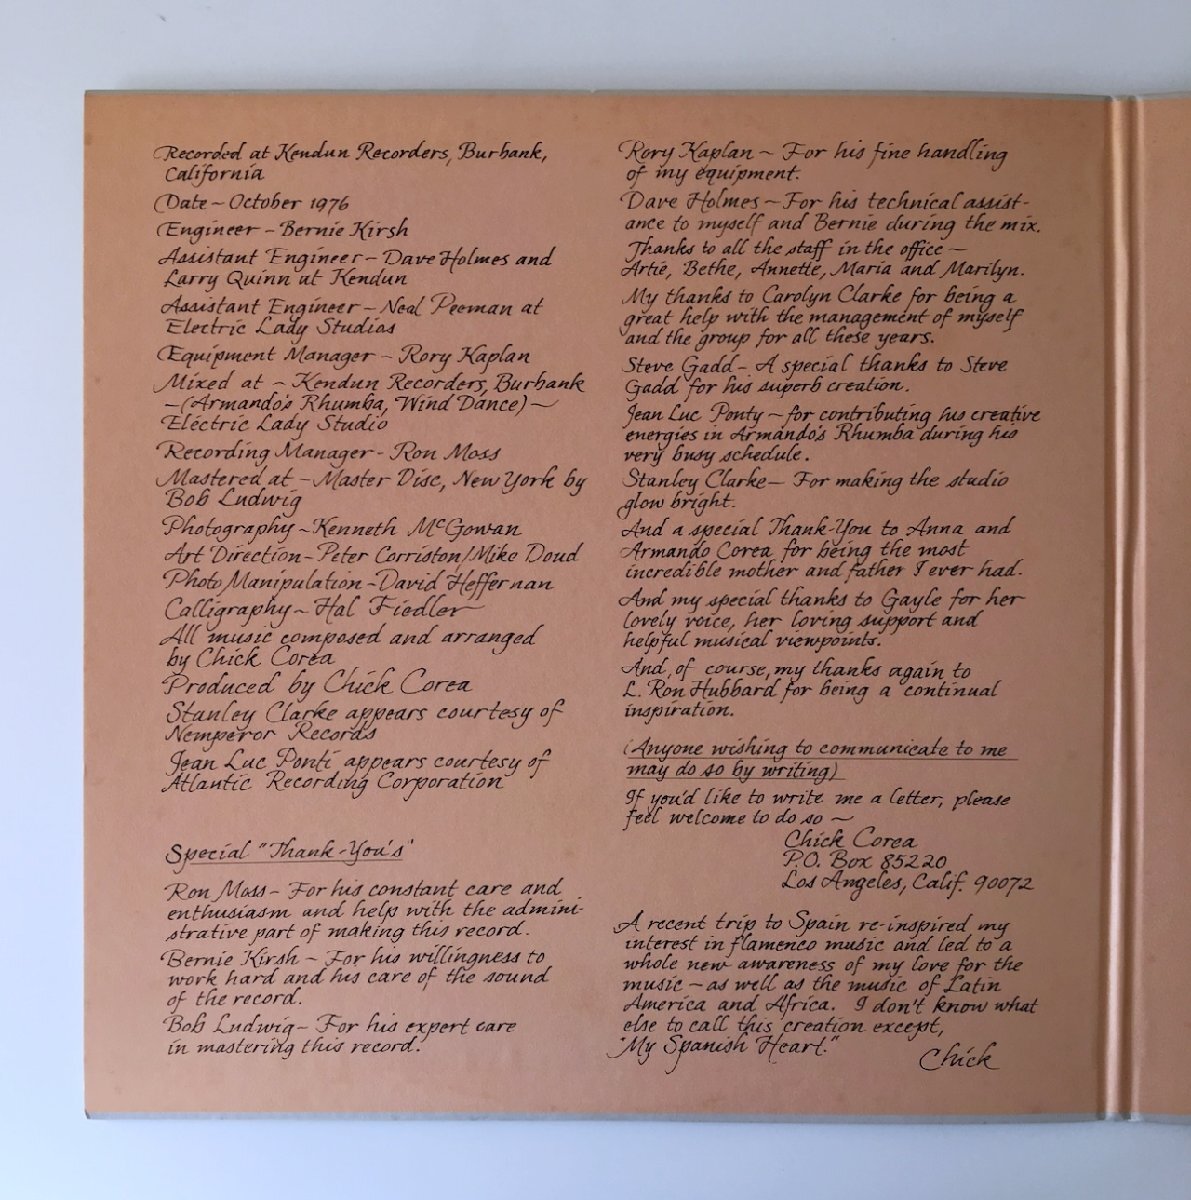 Recorded at Kendun Recorders, Burbank,
California
Date – October 1976
Engineer – Bernie Kirsh
Assistant Engineer – Dave Holmes and
Larry Quinn at Kendun
Assistant Engineer – Neal Peeman at
Electric Lady Studios
Equipment Manager – Rory Kaplan
Mixed at – Kendun Recorders, Burbank
– (Armando's Rhumba, Wind Dance) –
Electric Lady Studio
Recording Manager - Ron Moss
Mastered at – Master Disc, New York by
Bob Ludwig
Photography – Kenneth McGowan
Art Direction – Peter Corriston/Mike Doud
Photo Manipulation – David Heffernan
Calligraphy – Hal Fiedler
All music composed and arranged
by Chick Corea
Produced by Chick Corea
Stanley Clarke appears courtesy of
Nemperor Records
Jean Luc Ponti appears courtesy of
Atlantic Recording Corporation
Special "Thank-You's'
Ron Moss – For his constant care and
enthusiasm and help with the admini-
strative part of making this record.
Bernie Kirsh – For his willingness to
work hard and his care of the sound
of the record.
Bob Ludwig – For his expert care
in mastering this record.
Rory Kaplan – For his fine handling
of my equipment.
Dave Holmes – For his technical assist-
ance to myself and Bernie during the mix.
Thanks to all the staff in the office –
Artie, Bethe, Annette, Maria and Marilyn.
My thanks to Carolyn Clarke for being a
great help with the management of myself
and the group for all these years.
Steve Gadd – A special thanks to Steve
Gadd for his superb creation.
Jean Luc Ponty – for contributing his creative
energies in Armando's Rhumba during his
very busy schedule.
Stanley Clarke – For making the studio
glow bright.
And a special Thank-You to Anna and
Armando Corea for being the most
incredible mother and father I ever had.
And my special thanks to Gayle for her
lovely voice, her loving support and
helpful musical viewpoints.
And, of course, my thanks again to
L. Ron Hubbard for being a continual
inspiration.
(Anyone wishing to communicate to me
may do so by writing)
If you'd like to write me a letter, please
feel welcome to do so –
Chick Corea
P.O. Box 85220
Los Angeles, Calif. 90072
A recent trip to Spain re-inspired my
interest in flamenco music and led to a
whole new awareness of my love for the
music – as well as the music of Latin
America and Africa. I don't know what
else to call this creation except,
"My Spanish Heart."
Chick